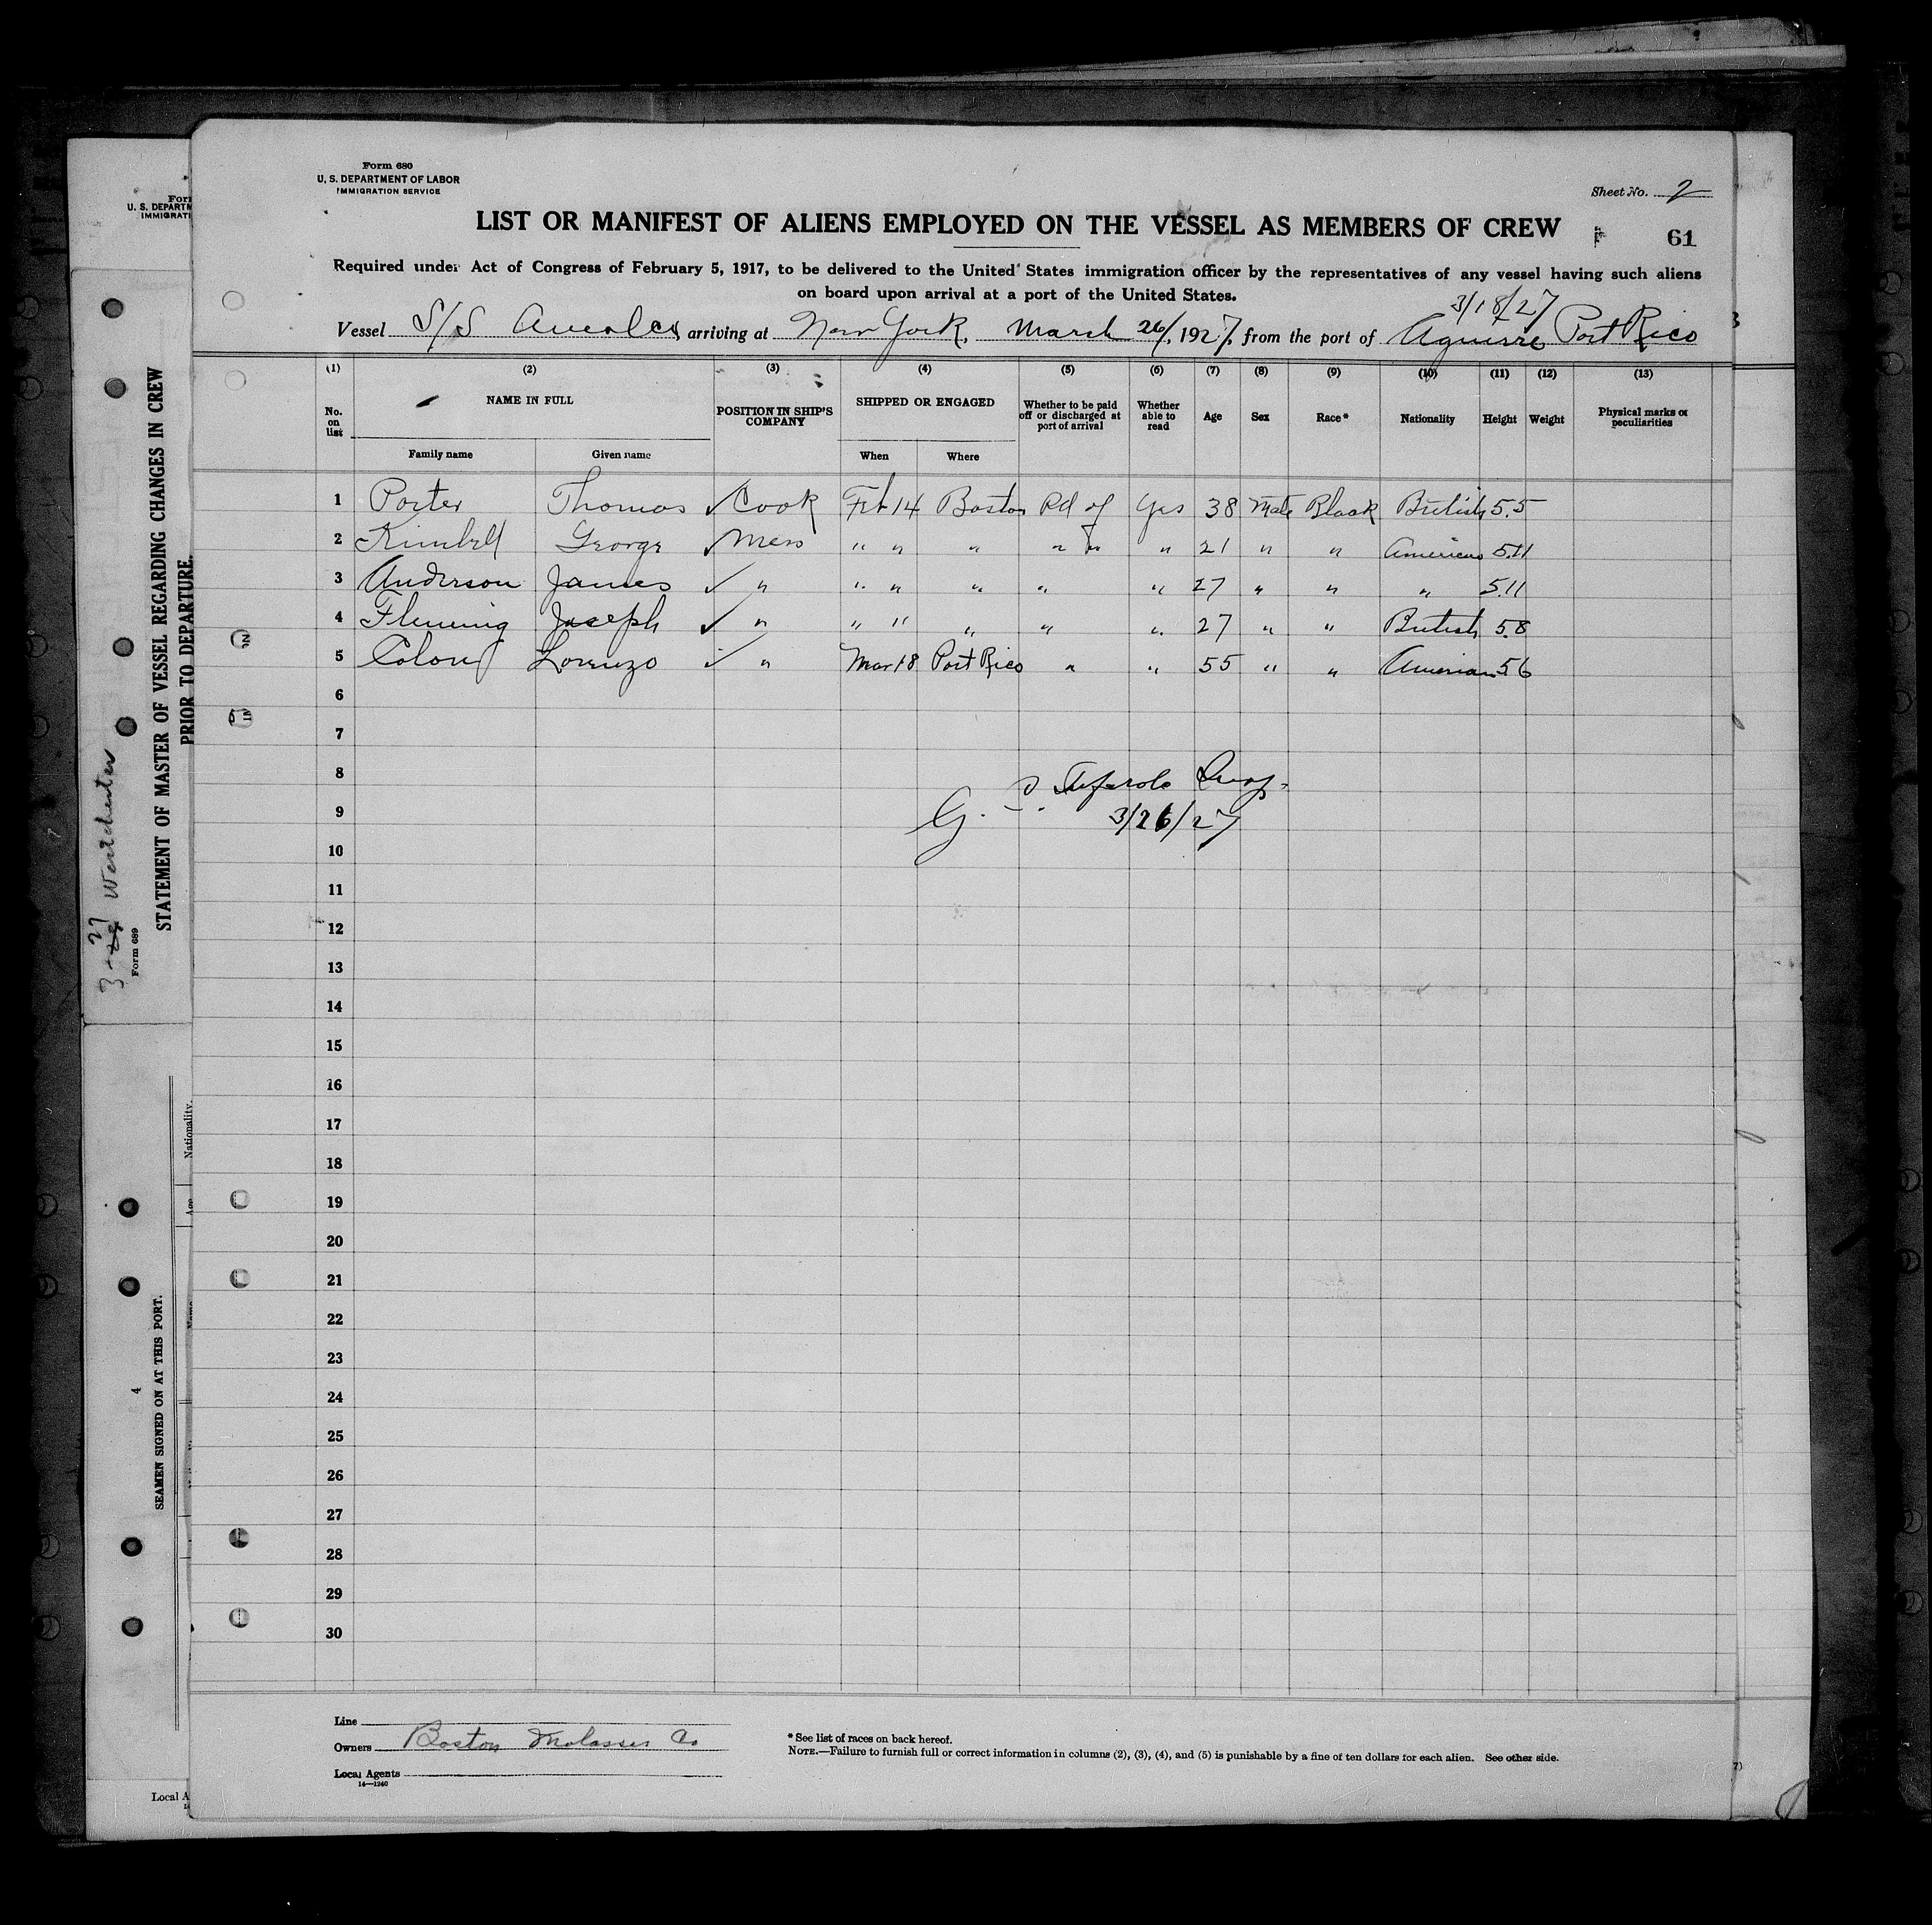 Form 680
U. S. DEPARTMENT OF LABOR
IMMIGRATION SERVICE
Sheet No. 2
LIST OR MANIFEST OF ALIENS EMPLOYED ON THE VESSEL AS MEMBERS OF CREW
61
Required under Act of Congress of February 5, 1917, to be delivered to the United States immigration officer by the representatives of any vessel having such aliens
on board upon arrival at a port of the United States.
3/18/27
Vessel S/S arriving at New York, March 26/, 1927, from the port of Aguirre Port Rico
(1) (2) (3) (4) (5) (6) (7) (8) (9) (10) (11) (12) (13)
No. on list NAME IN FULL POSITION IN SHIP'S COMPANY SHIPPED OR ENGAGED Whether to be paid off or discharged at port of arrival Whether able to read Age Sex Race* Nationality Height Weight Physical marks or peculiarities
Family name Given name When Where
1 Porter Thomas ✓ Cook Feb 14 Boston Pd of Yes 38 Male Black British 5.5
2 Kimbell George ✓ Mess " " " " " " 21 " " American 5.11
3 Anderson James ✓ " " " " " " 27 " " " 5.11
4 Fleming Joseph ✓ " " " " " " 27 " " British 5.8
5 Colon Lorenzo ✓ " Mar 18 Port Rico " " 55 " " American 5 6
6
7
8
9 3/26/27
10
11
12
13
14
15
16
17
18
19
20
21
22
23
24
25
26
27
28
29
30
Line
Owners Boston Molasses Co
Local Agents
14—1240
* See list of races on back hereof.
NOTE.—Failure to furnish full or correct information in columns (2), (3), (4), and (5) is punishable by a fine of ten dollars for each alien. See other side.
U. S. DEPARTM
IMMIGRATI
STATEMENT OF MASTER OF VESSEL REGARDING CHANGES IN CREW
PRIOR TO DEPARTURE.
Westchester
Form 689
Nationality.
Age
SEAMEN SIGNED ON AT THIS PORT.
4
Local A